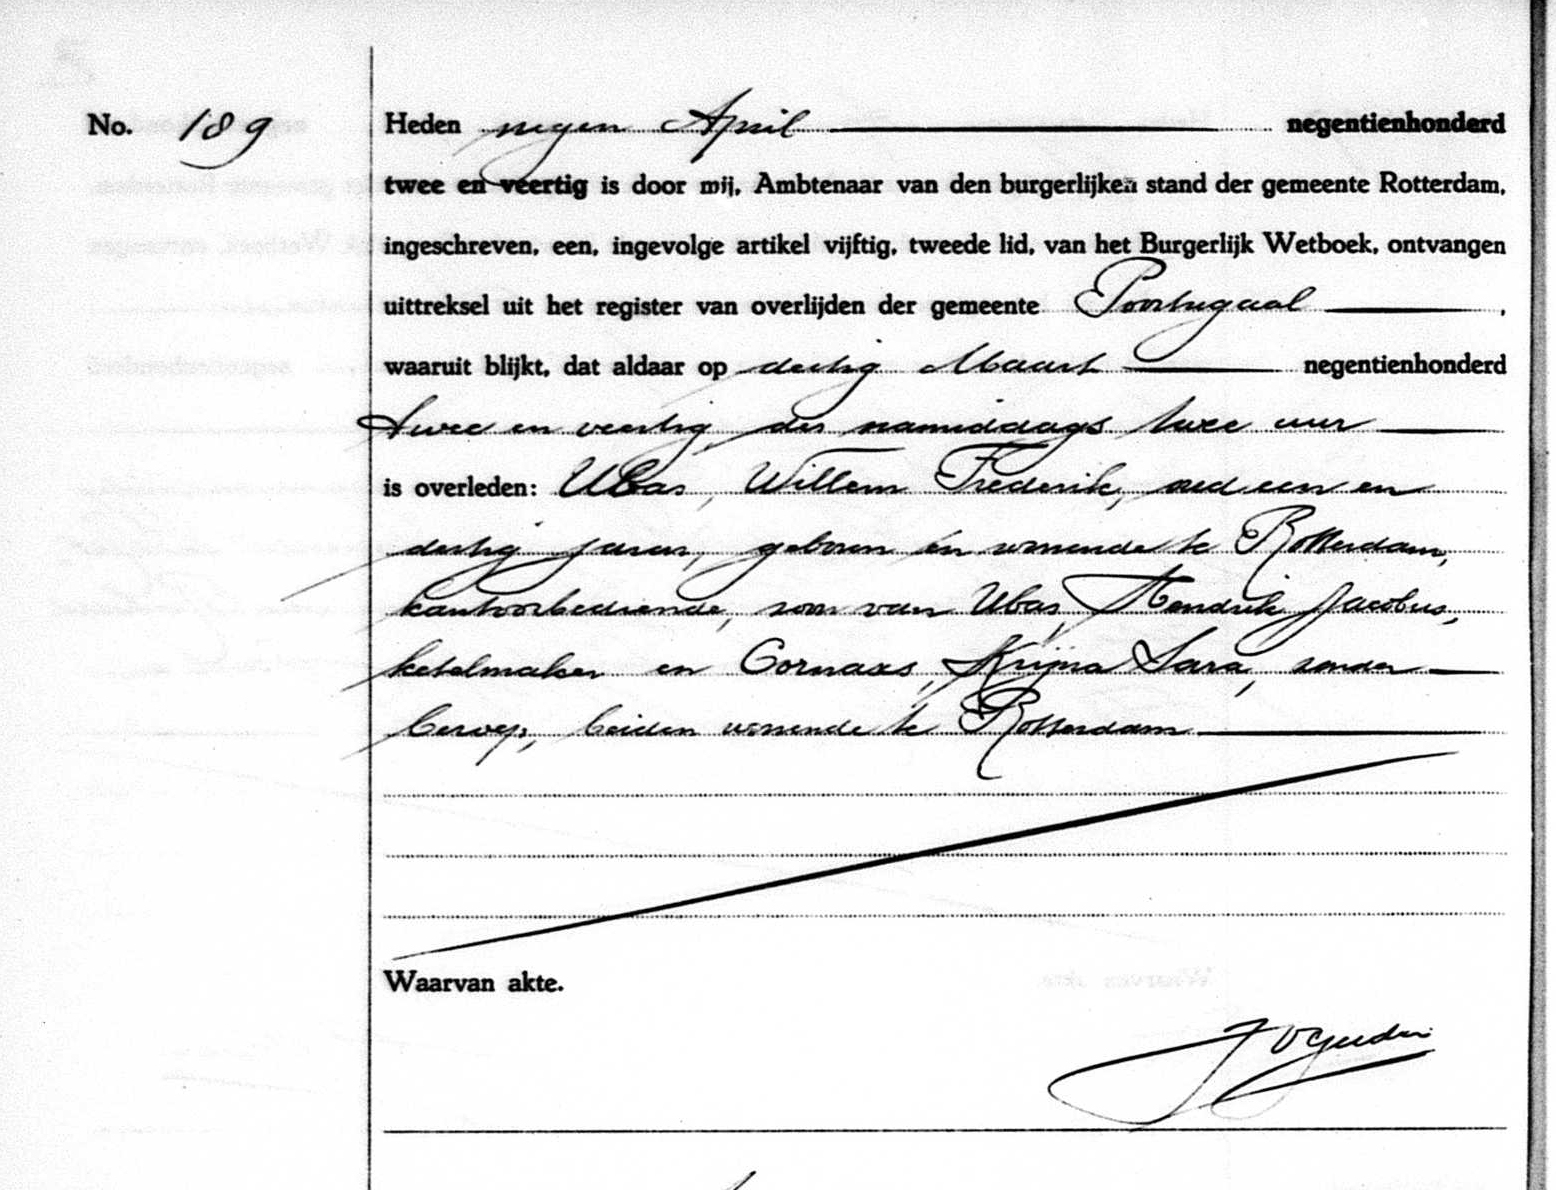 No. 189 Heden negen April negentienhonderd
twee en veertig is door mij, Ambtenaar van den burgerlijken stand der gemeente Rotterdam,
ingeschreven, een, ingevolge artikel vijftig, tweede lid, van het Burgerlijk Wetboek, ontvangen
uittreksel uit het register van overlijden der gemeente Poortugaal,
waaruit blijkt, dat aldaar op dertig Maart negentienhonderd
twee en veertig, des namiddags twee uur
is overleden: Ubas, Willem Frederik, oud een en
dertig jaren, geboren en wonende te Rotterdam,
kantoorbediende, zoon van Ubas, Hendrik Jacobus,
ketelmaker en Cornaas, Krijna Sara, zonder
beroep, beiden wonende te Rotterdam
Waarvan akte.